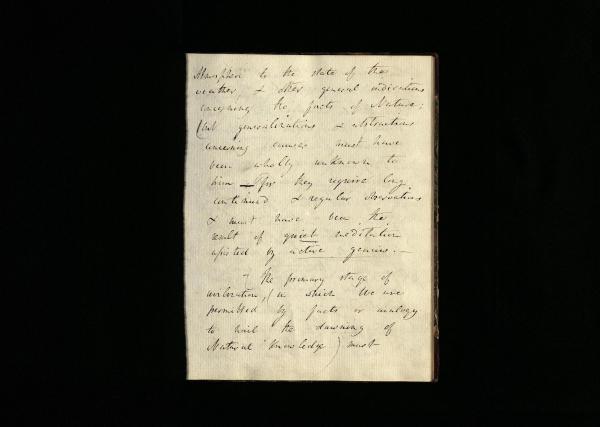 Atmosphere to the state of the
weather, & other general indications
concerning the facts of Nature;
(but generalizations & abstractions
concerning causes must have
been wholly unknown to
him — for they require long
continued & regular observations
& must have been the
result of quiet meditation
assisted by active genius. —
" The primary stage of
civilization, (in which we are
permitted by facts or analogy
to hail the dawning of
Natural Knowledge) must